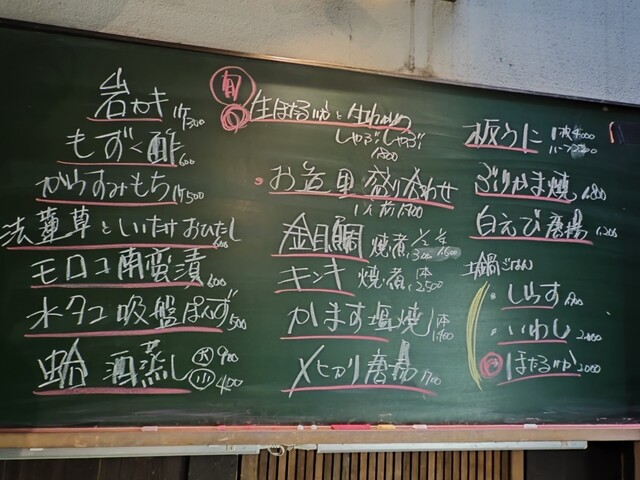 岩カキ 1ケ500
もずく酢 600
からすみもち 1ケ500
法蓮草といたけおひたし 600
モロコ南蛮漬 600
水タコ吸盤ぽんず 500
蛤酒蒸し 大 900
小 400
旬の 生ほたるいかと生わかめ
しゃぶしゃぶ
1800
お造里盛り合わせ
1人前1900
金目鯛 焼煮 1/2
キンキ 焼煮 1本 2500
かます塩焼 1本
メヒカリ唐揚 700
板うに 1枚4000
ぶりかま焼 1800
白えび唐揚 1200
土鍋ごはん
・しらす
・いわし 2000
ほたるいか 2000